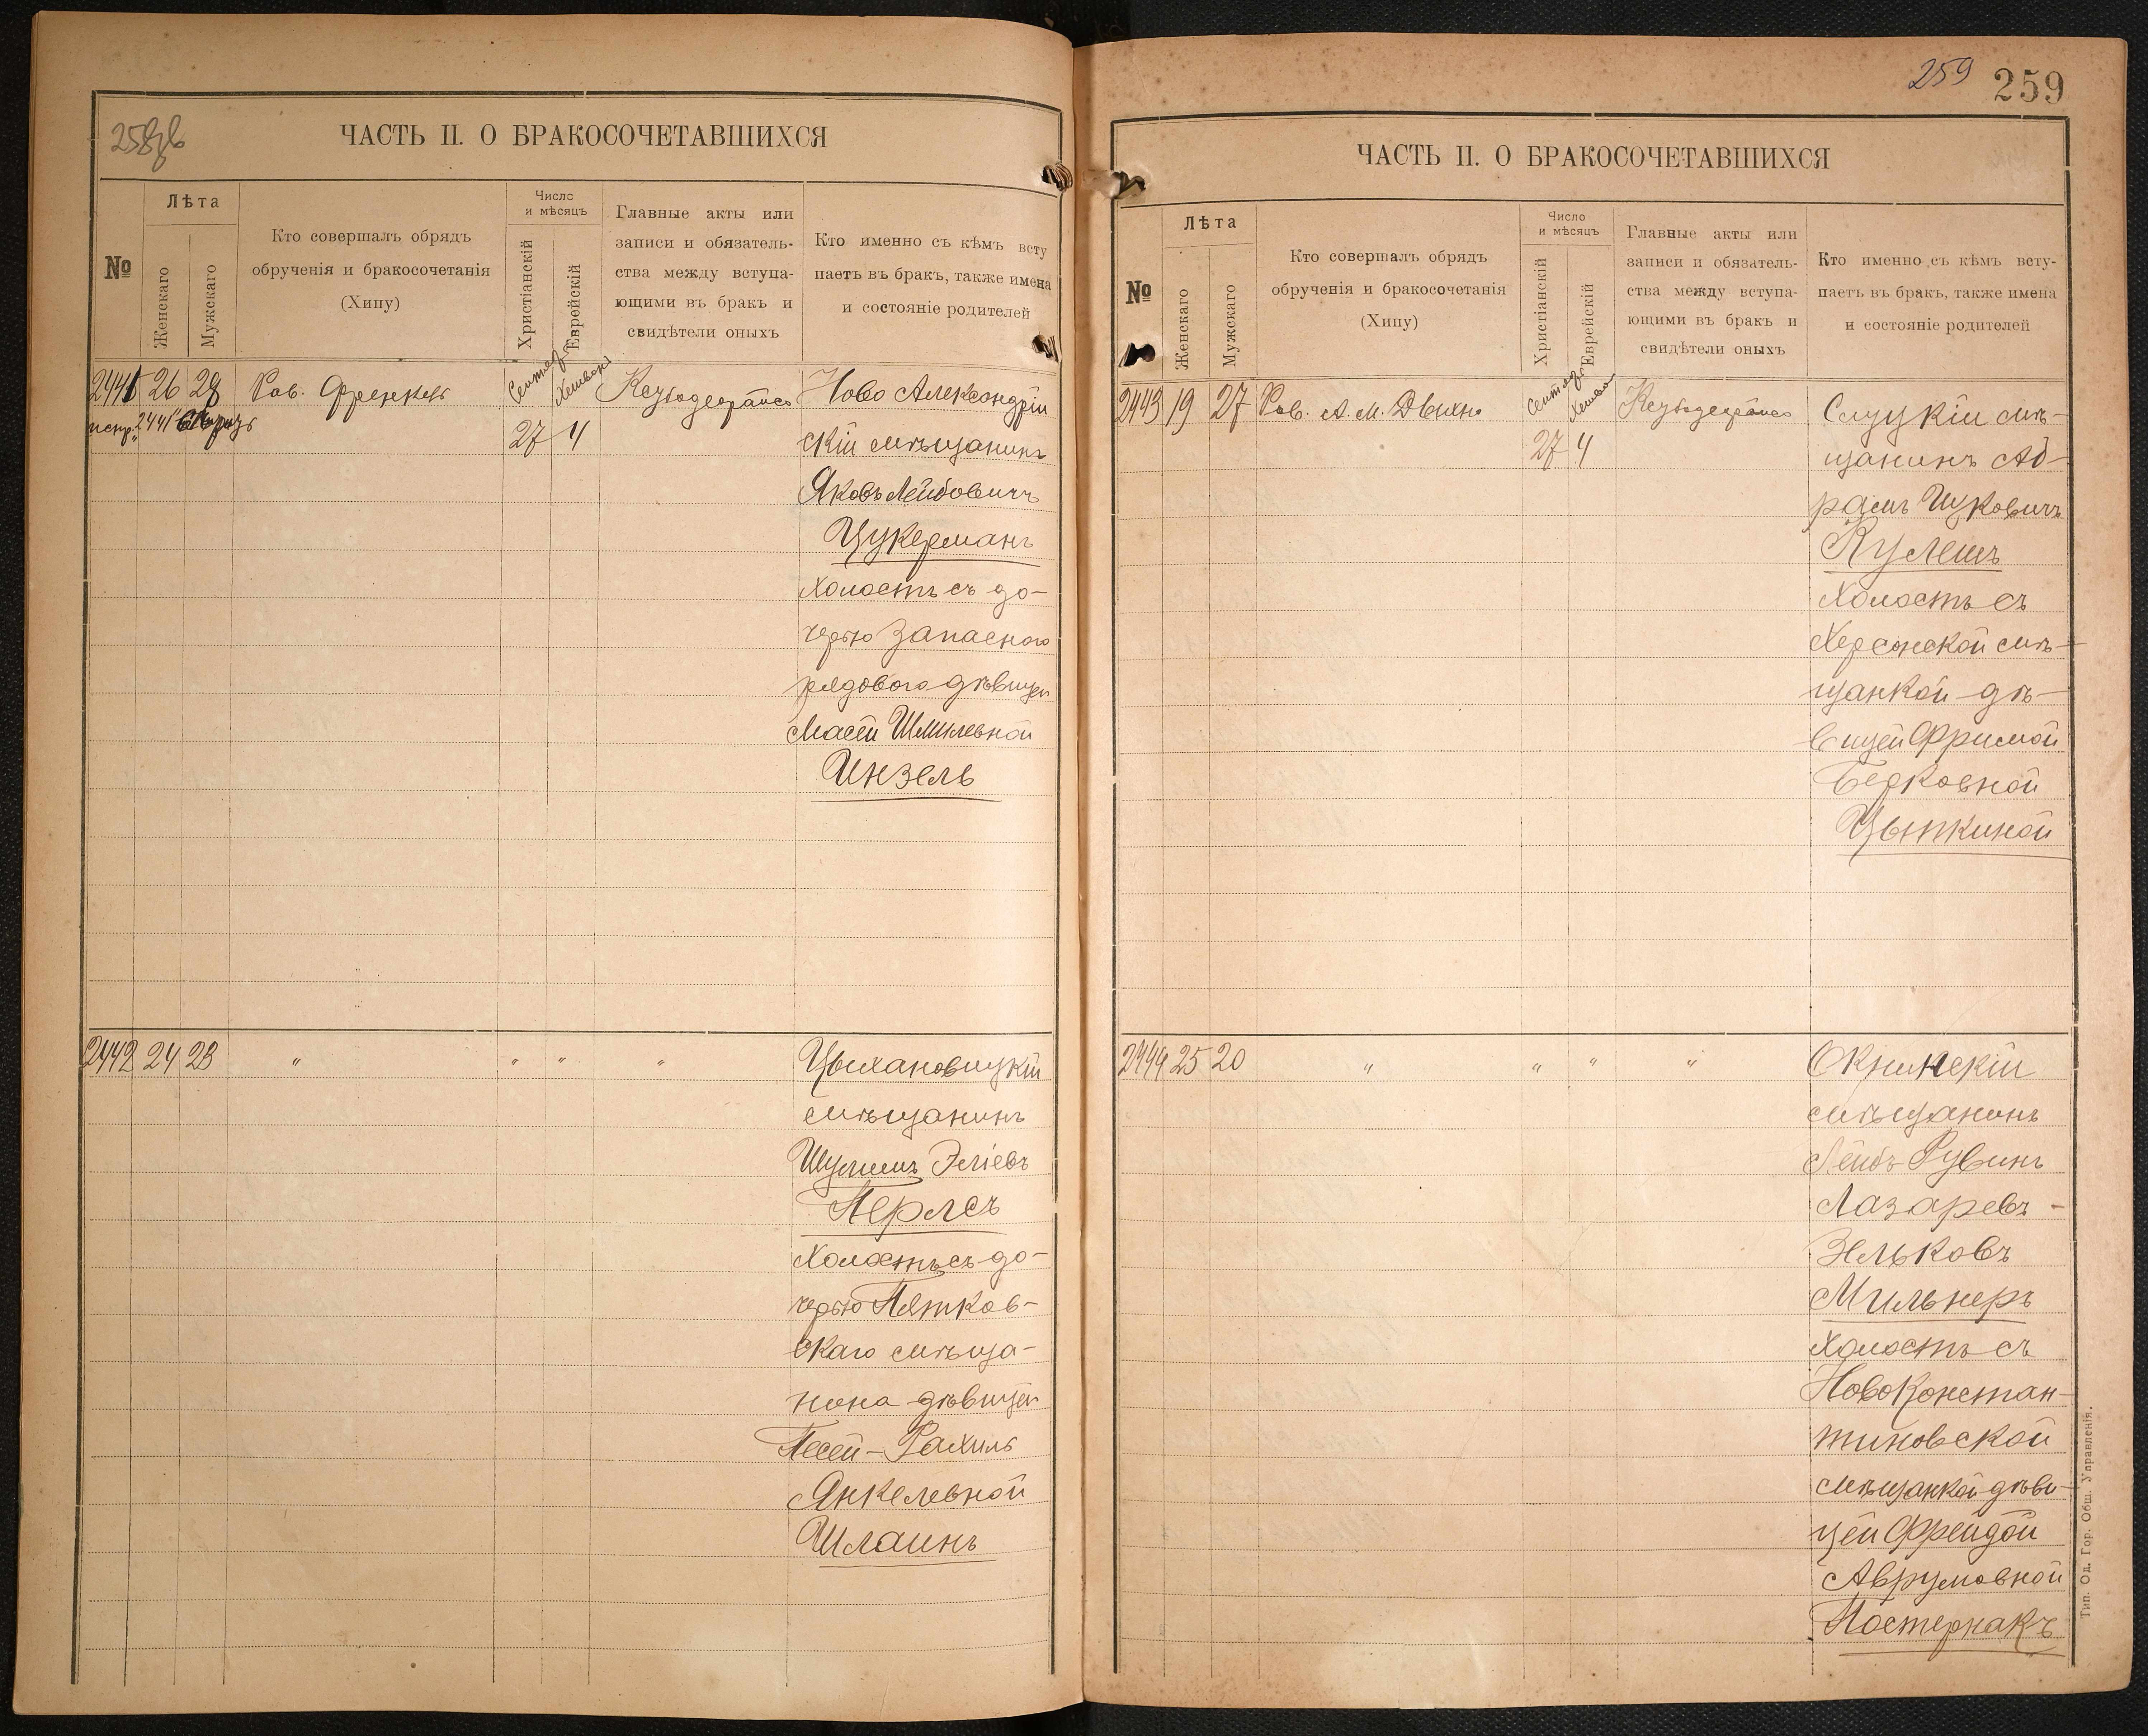 258об
ЧАСТЬ II. О БРАКОСОЧЕТАВШИХСЯ
№
Лѣта
Женскаго
Мужскаго
Кто совершалъ обрядъ
обрученія и бракосочетанія
(Хипу)
Число
и мѣсяцъ
Христіанскій
Еврейскій
Главные акты или
записи и обязатель-
ства между вступа-
ющими въ бракъ и
свидѣтели оныхъ
Кто именно съ кѣмъ всту
паетъ въ бракъ, также имена
и состояніе родителей
2441 26 28 Рав. Френкель
27 4
Ново Александрій
скій мѣщанинъ
Яковъ Лейбовичъ
Цукерманъ
холостъ съ до-
черью запаснаго
рядового дѣвицей
Масей Шмилевной
Инзель
2442 24 23 " " " "
Цыхановицкій
мѣщанинъ
Шулимъ Эліевъ
Перлсъ
холостъ съ до-
черью Пятков-
скаго мѣща-
нина дѣвицей
Песей-Рахиль
Янкелевной
Шлаинъ
259 259
ЧАСТЬ II. О БРАКОСОЧЕТАВШИХСЯ
№
Лѣта
Женскаго
Мужскаго
Кто совершалъ обрядъ
обрученія и бракосочетанія
(Хипу)
Число
и мѣсяцъ
Христіанскій
Еврейскій
Главные акты или
записи и обязатель-
ства между вступа-
ющими въ бракъ и
свидѣтели оныхъ
Кто именно съ кѣмъ всту-
паетъ въ бракъ, также имена
и состояніе родителей
2443 19 27 Рав. А. М.
27 4
Слуцкій мѣ-
щанинъ Аб-
рамъ Ицковичъ
Кулешъ
холостъ съ
Херсонской мѣ-
щанкой дѣ-
вицей Фримой
Берковной
Цыпкиной
2444 25 20 " " " "
Окнинскій
мѣщанинъ
Лейбъ Рувинъ
Лазаревъ -
Зельковъ
Мильнеръ
холостъ съ
Новоконстан-
тиновской
мѣщанкой дѣви-
цей Фрейдой
Аврумовной
Постернакъ
Тип. Од. Гор. Общ. Управленія.